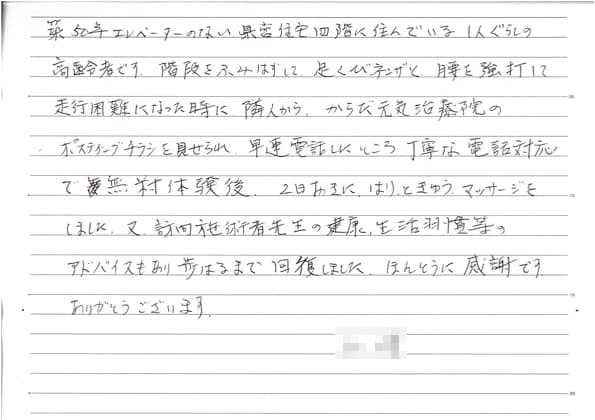 築50年エレベーターのない県営住宅四階に住んでいる1人ぐらしの
高齢者です。階段をふみはずして、足くびネンザと、腰を強打して
走行困難になった時に隣人から、からだ元気治療院の
ポスティングチラシを見せられ、早速電話したところ丁寧な電話対応
で無料体験後、2日おきに、はり、ときゅう、マッサージを
しました。又、訪問施術者先生の健康、生活習慣等の
アドバイスもあり歩けるまで回復しました。ほんとうに感謝です
ありがとうございます。